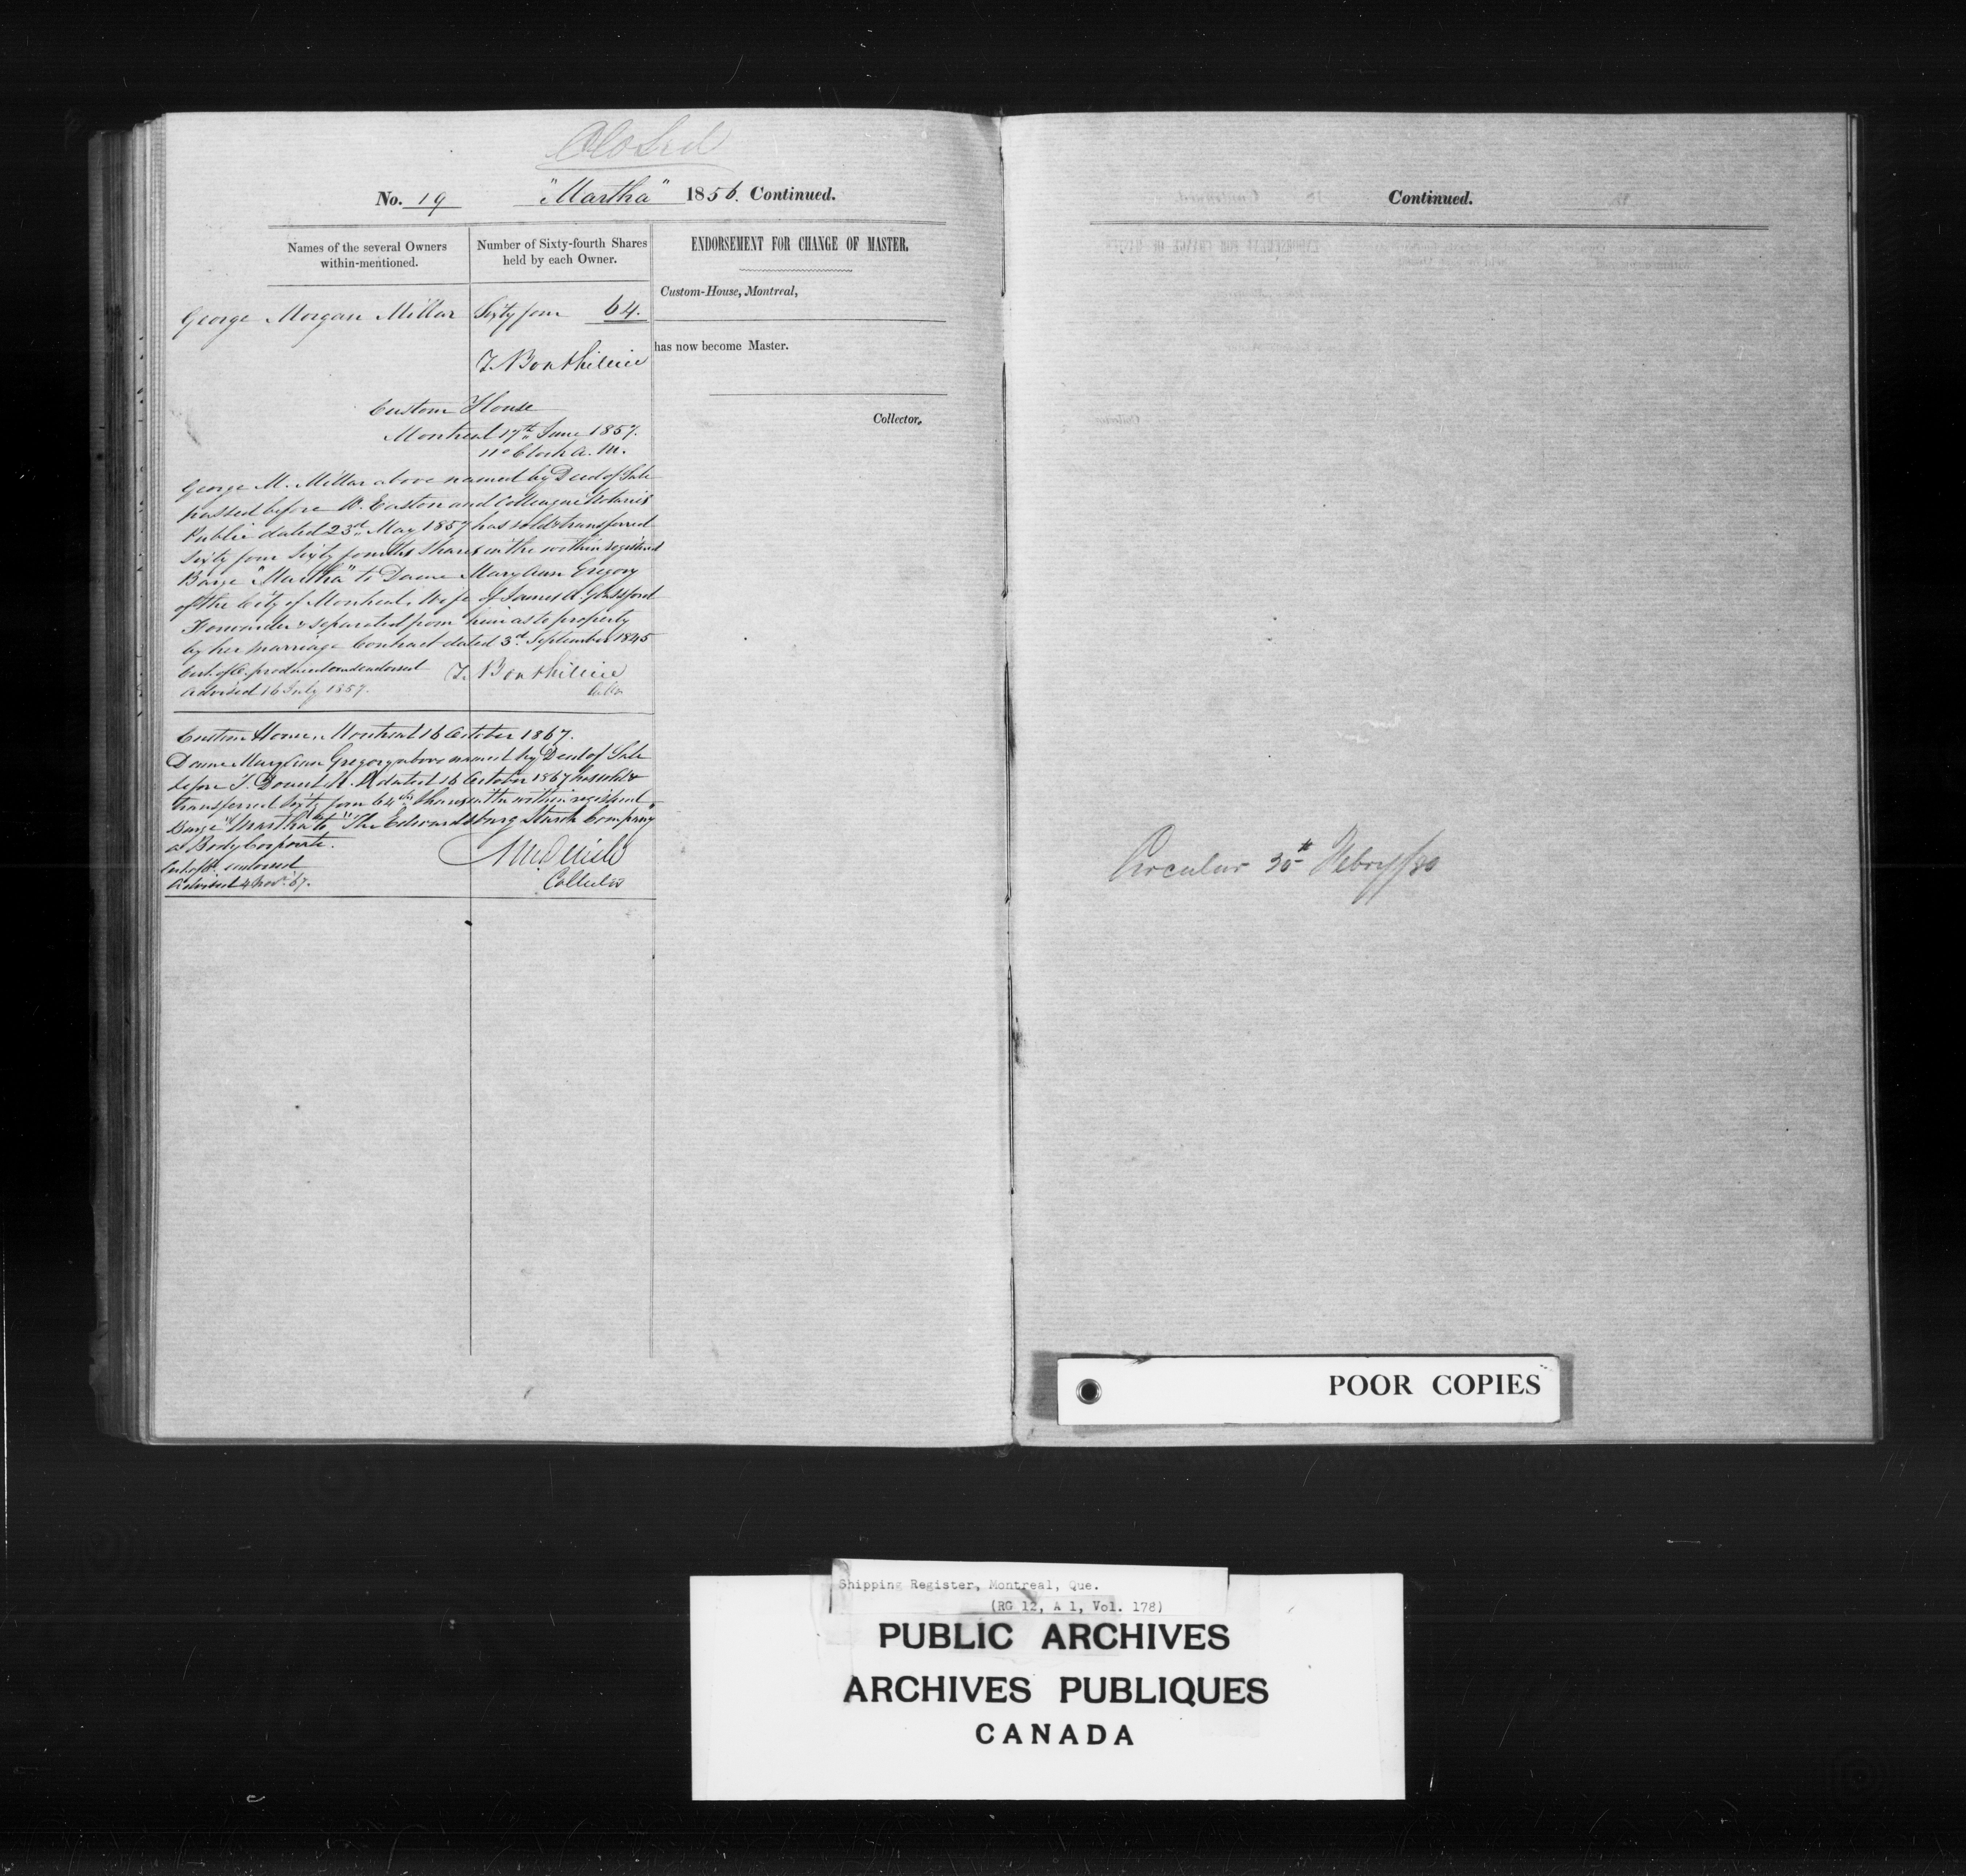 Closed
No. 19 "Martha" 1856. Continued.
Names of the several Owners
within-mentioned.
Number of Sixty-fourth Shares
held by each Owner.
ENDORSEMENT FOR CHANGE OF MASTER.
Custom-House, Montreal,
has now become Master.
Collector.
George Morgan Millar Sixty four 64.
Custom House
Montreal 17th June 1857.
11 o'Clock A. M.
George M. Millar above named by Deed of Sale
passed before W. Easton and Colleague Notaries
Public dated 23rd May 1857 has sold & transferred
Sixty four Sixty fourths Shares in the within registered
Barge "Martha" to Dame Mary Ann Gregory
of the City of Montreal, Wife of James A. Glassford
Forwarder & separated from him as to property
by her marriage Contract dated 3rd September 1845
Cert. of O. produced and endorsed
Advised 16 July 1857.
Custom House, Montreal 16 October 1867.
Dame Mary Ann Gregory above named by Deed of Sale
before T. Doucet N. P. dated 16 October 1867 has sold &
transferred Sixty four 64ths Shares in the within registered
Barge "Martha" to "The Edwardsburg Starch Company"
a Body Corporate.
Cert. of O. endorsed
Advised 4 Nov. 67.
Collector
Continued.
Circular 30th Febry/80
POOR COPIES
Shipping Register, Montreal, Que.
(RG 12, A 1, Vol. 178)
PUBLIC ARCHIVES
ARCHIVES PUBLIQUES
CANADA